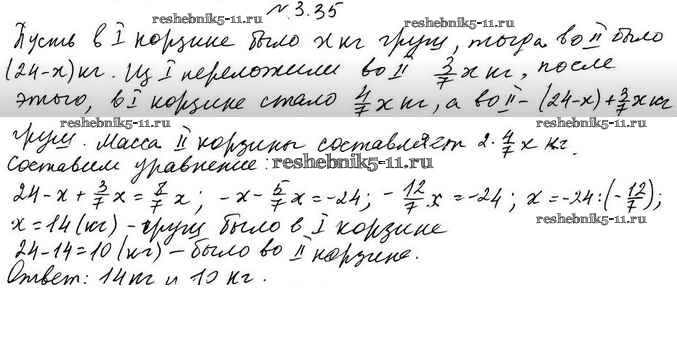 № 3.35
reshebnik5-11.ru
reshebnik5-11.ru
Пусть в I корзине было x кг груш, тогда во II было
(24-x) кг. Из I переложили во II 3/7 x кг, после
reshebnik5-11.ru
этого, в I корзине стало 4/7 x кг, а во II - (24-x)+3/7 x кг
reshebnik5-11.ru
груш. Масса II корзины составляет 2·4/7 x кг.
Составим уравнение: reshebnik5-11.ru
24-x+3/7 x=8/7 x; -x-5/7 x=-24; -12/7 x=-24; x=-24:(-12/7);
reshebnik5-11.ru
reshebnik5-11.ru
x=14(кг)-груш было в I корзине
24-14=10(кг)-было во II корзине.
Ответ: 14кг и 10 кг.